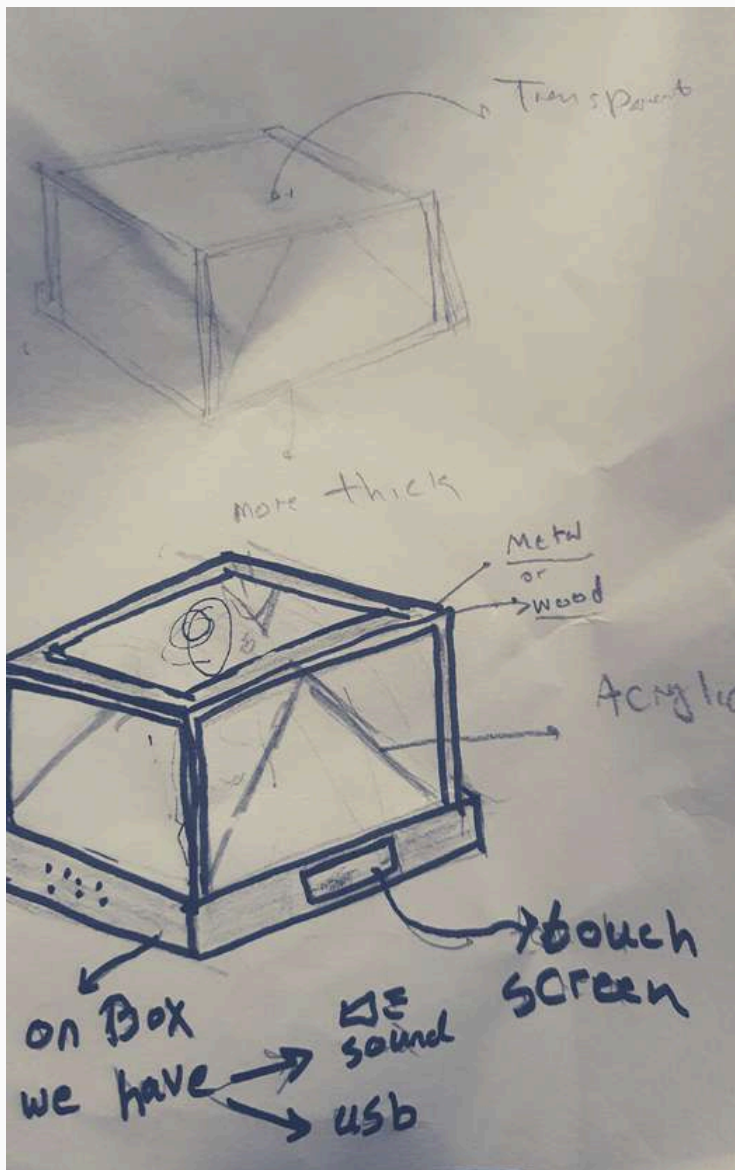 Transparent
more thick
Metal
or
wood
Acrylic
touch
screen
on Box
we have
sound
usb